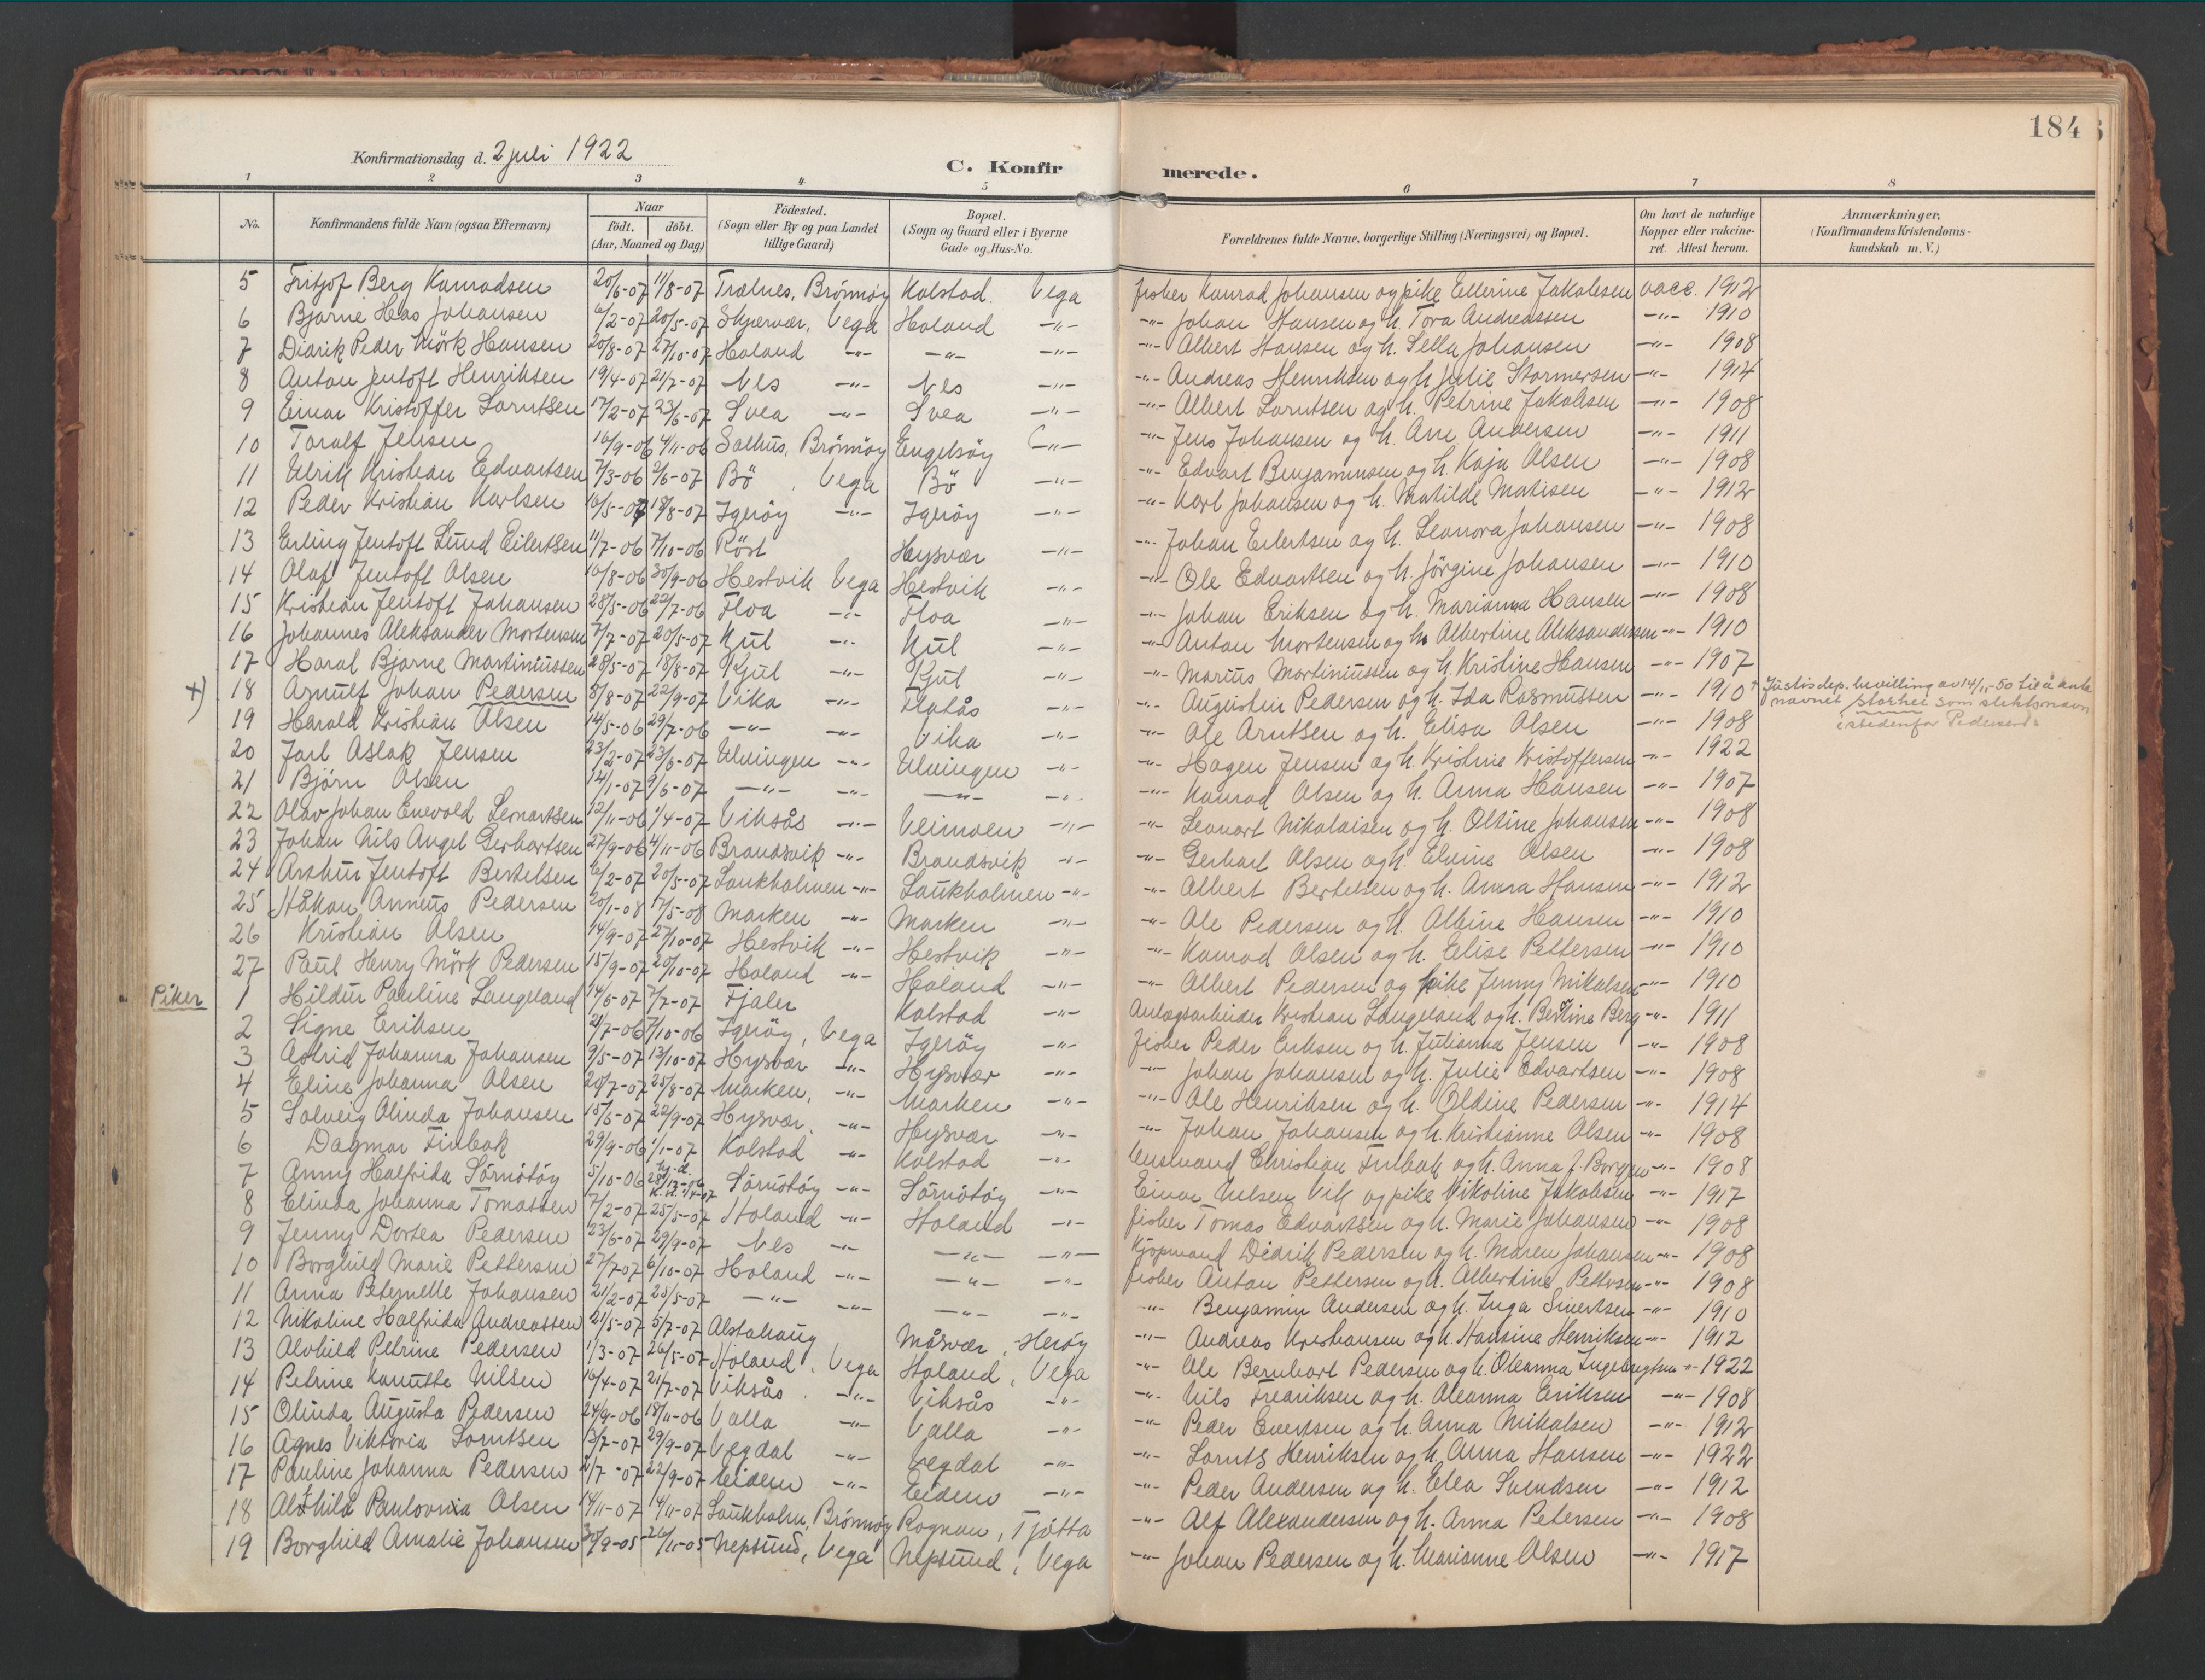 184
Konfirmationsdag d. 2 juli 1922
C. Konfirmerede.
1 2 3 4 5 6 7 8
No. Konfirmandens fulde Navn (ogsaa Efternavn) Naar födt. döbt. (Aar, Maaned og Dag) Födested. (Sogn eller By og paa Landet tillige Gaard) Bopæl. (Sogn og Gaard eller i Byerne Gade og Hus-No. Forældrenes fulde Navne, borgerlige Stilling (Næringsvei) og Bopæl. Om havt de naturlige Kopper eller vakcineret. Attest herom. Anmærkninger. (Konfirmandens Kristendomskundskab m. V.)
5 Fritjof Berg Konradsen 20/6-07 11/8-07 Trælnes, Brönnöy Kolstad. Vega fisker Konrad Johansen og pike Ellerine Jakobsen vacc. 1912
6 Bjarne Heas Johansen 6/2-07 20/5-07 Skjærvær, Vega Holand -"- -"- Johan Hansen og h. Tora Andreassen -"- 1910
7 Didrik Peder Mörk Hansen 20/8-07 27/10-07 Holand -"- -"- -"- -"- Albert Hansen og h. Sella Johansen -"- 1908
8 Anton Jentoft Henriksen 19/4-07 21/7-07 Nes -"- Nes -"- -"- Andreas Henriksen og h. Julie Stormersen -"- 1914
9 Einar Kristoffer Lorntsen 17/2-07 23/6-07 Svea -"- Svea -"- -"- Albert Lorntsen og h. Petrine Jakobsen -"- 1908
10 Toralf Jensen 16/9-06 4/11-06 Salhus, Brönnöy Engelsöy -"- -"- Jens Johansen og h. Ane Andersen -"- 1911
11 Ulrik Kristian Edvartsen 7/3-06 2/6-07 Bö, Vega Bö -"- -"- Edvart Benjaminsen og h. Kaja Olsen -"- 1908
12 Peder Kristian Karlsen 16/5-07 18/8-07 Igeröy -"- Igeröy -"- -"- Karl Johansen og h. Matilde Matisen -"- 1912
13 Erling Jentoft Lund Eilertsen 11/7-06 7/10-06 Röst Hysvær -"- -"- Johan Eilertsen og h. Leonora Johansen -"- 1908
14 Olaf Jentoft Olsen 16/8-06 30/9-06 Hestvik Vega Hestvik -"- -"- Ole Edvartsen og h. Jörgine Johansen -"- 1910
15 Kristian Jentoft Johansen 28/5-06 22/7-06 Floa -"- Floa -"- -"- Johan Eriksen og h. Marianna Hansen -"- 1908
16 Johannes Aleksander Mortensen 7/7-07 20/5-07 Kul -"- Kul -"- -"- Anton Mortensen og h. Albertine Aleksandersen -"- 1910
17 Haral Bjarne Martiniussen 28/5-07 18/8-07 Kjul -"- Kjul -"- -"- Marius Martiniussen og h. Kristine Hansen -"- 1907
+) 18 Arnulf Johan Pedersen 8/8-07 22/9-07 Vika -"- Flatås -"- -"- Augustin Pedersen og h. Ida Rasmussen -"- 1910 + Justisdep. bevilling av 14/11-50 til å anta navnet Starhei som slektsnavn istedenfor Pedersen.
19 Harald Kristian Olsen 14/5-06 29/7-06 -"- -"- Vika -"- -"- Ole Arntsen og h. Elisa Olsen -"- 1908
20 Jarl Aslak Jensen 23/2-07 23/6-07 Ulvingen -"- Ulvingen -"- -"- Hagen Jensen og h. Kristine Kristoffersen -"- 1922
21 Björn Olsen 14/1-07 9/6-07 -"- -"- -"- -"- -"- Konrad Olsen og h. Anna Hansen -"- 1907
22 Olav Johan Enevold Leonartsen 12/11-06 1/4-07 Viksås -"- Veimoen -"- -"- Leonart Nikolaisen og h. Oltine Johansen -"- 1908
23 Johan Nils Angel Gerhartsen 27/9-06 4/11-06 Brandsvik -"- Brandsvik -"- -"- Gerhart Olsen og h. Elvine Olsen -"- 1908
24 Arthur Jentoft Bertelsen 6/2-07 20/5-07 Laukholmen -"- Laukholmen -"- -"- Albert Bertelsen og h. Anna Hansen -"- 1912
25 Håkon Anneus Pedersen 20/1-08 17/5-08 Marken -"- Marken -"- -"- Ole Pedersen og h. Albine Hansen -"- 1910
26 Kristian Olsen 14/9-07 27/10-07 Hestvik -"- Hestvik -"- -"- Konrad Olsen og h. Elise Pettersen -"- 1910
27 Paul Henry Mörk Pedersen 15/9-07 20/10-07 Holand -"- Holand -"- -"- Albert Pedersen og pike Jenny Nikolsen -"- 1910
Piker 1 Hildur Pauline Langeland 14/6-07 7/7-07 Fjaler Kolstad -"- Anlægsarbeider Kristian Langeland og h. Bertine Berg -"- 1911
2 Signe Eriksen 21/7-06 7/10-06 Igeröy, Vega Igeröy -"- fisker Peder Eriksen og h. Julianna Jensen -"- 1908
3 Astrid Johanna Johansen 9/5-07 13/10-07 Hysvær -"- Hysvær -"- -"- Johan Johansen og h. Julie Edvartsen -"- 1908
4 Eline Johanna Olsen 20/7-07 25/8-07 Marken, -"- Marken -"- -"- Ole Henriksen og h. Oldine Pedersen -"- 1914
5 Solveig Olinda Johansen 15/6-07 22/9-07 Hysvær, -"- Hysvær -"- -"- Johan Johansen og h. Kristianne Olsen -"- 1908
6 Dagmar Finbak 29/9-06 1/1-07 Kolstad -"- Kolstad -"- Lensmand Christian Finbak og h. Anna J. Borggen -"- 1908
7 Anny Halfrida Sörnötöy 5/10-06 Hj. d. 28/12-06 K. st. 1/4-07 Sörnötöy -"- Sörnötöy -"- Einar Nilsen Vik og pike Nikoline Jakobsen -"- 1917
8 Elinda Johanna Tomassen 7/2-07 25/5-07 Holand -"- Holand -"- fisker Tomas Edvartsen og h. Marie Johansen -"- 1908
9 Jenny Dortea Pedersen 23/6-07 29/9-07 Nes -"- -"- -"- Kjöpmand Didrik Pedersen og h. Maren Johansen -"- 1908
10 Borghild Marie Pettersen 27/7-07 6/10-07 Holand -"- -"- -"- fisker Anton Pettersen og h. Albertine Pettersen -"- 1908
11 Anna Peternelle Johansen 21/2-07 25/5-07 -"- -"- -"- -"- -"- Benjamin Andersen og h. Inga Sivertsen -"- 1910
12 Nikoline Halfrida Andreassen 21/5-07 5/7-07 Alstahaug Måsvær, Heröy -"- Andreas Kristiansen og h. Hansine Henriksen -"- 1912
13 Alvhild Petrine Pedersen 1/3-07 26/5-07 Holand, Vega Holand, Vega -"- Ole Bernhart Pedersen og h. Oleanna Ingebregtsen -"- 1922
14 Petrine Kanutte Nilsen 16/4-07 21/7-07 Viksås. -"- Viksås -"- -"- Nils Fredriksen og h. Oleanna Eriksen -"- 1908
15 Olinda Augusta Pedersen 24/9-06 18/11-06 Valla -"- Valla -"- -"- Peder Evertsen og h. Anna Nikolsen -"- 1912
16 Agnes Viktoria Lorntsen 13/7-07 29/9-07 Vegdal -"- Vegdal -"- -"- Lornts Henriksen og h. Anna Hansen -"- 1922
17 Pauline Johanna Pedersen 2/7-07 22/9-07 Eidem -"- Eidem -"- -"- Peder Andersen og h. Elea Svendsen -"- 1912
18 Alfhild Paulovnia Olsen 14/11-07 14/11-07 Laukholm, Brönnöy Rognan, Tjötta -"- Alf Alexandersen og h. Anna Petersen -"- 1908
19 Borghild Amalie Johansen 30/9-05 26/11-05 Nepsund, Vega Nepsund, Vega -"- Johan Pedersen og h. Marianne Olsen -"- 1917